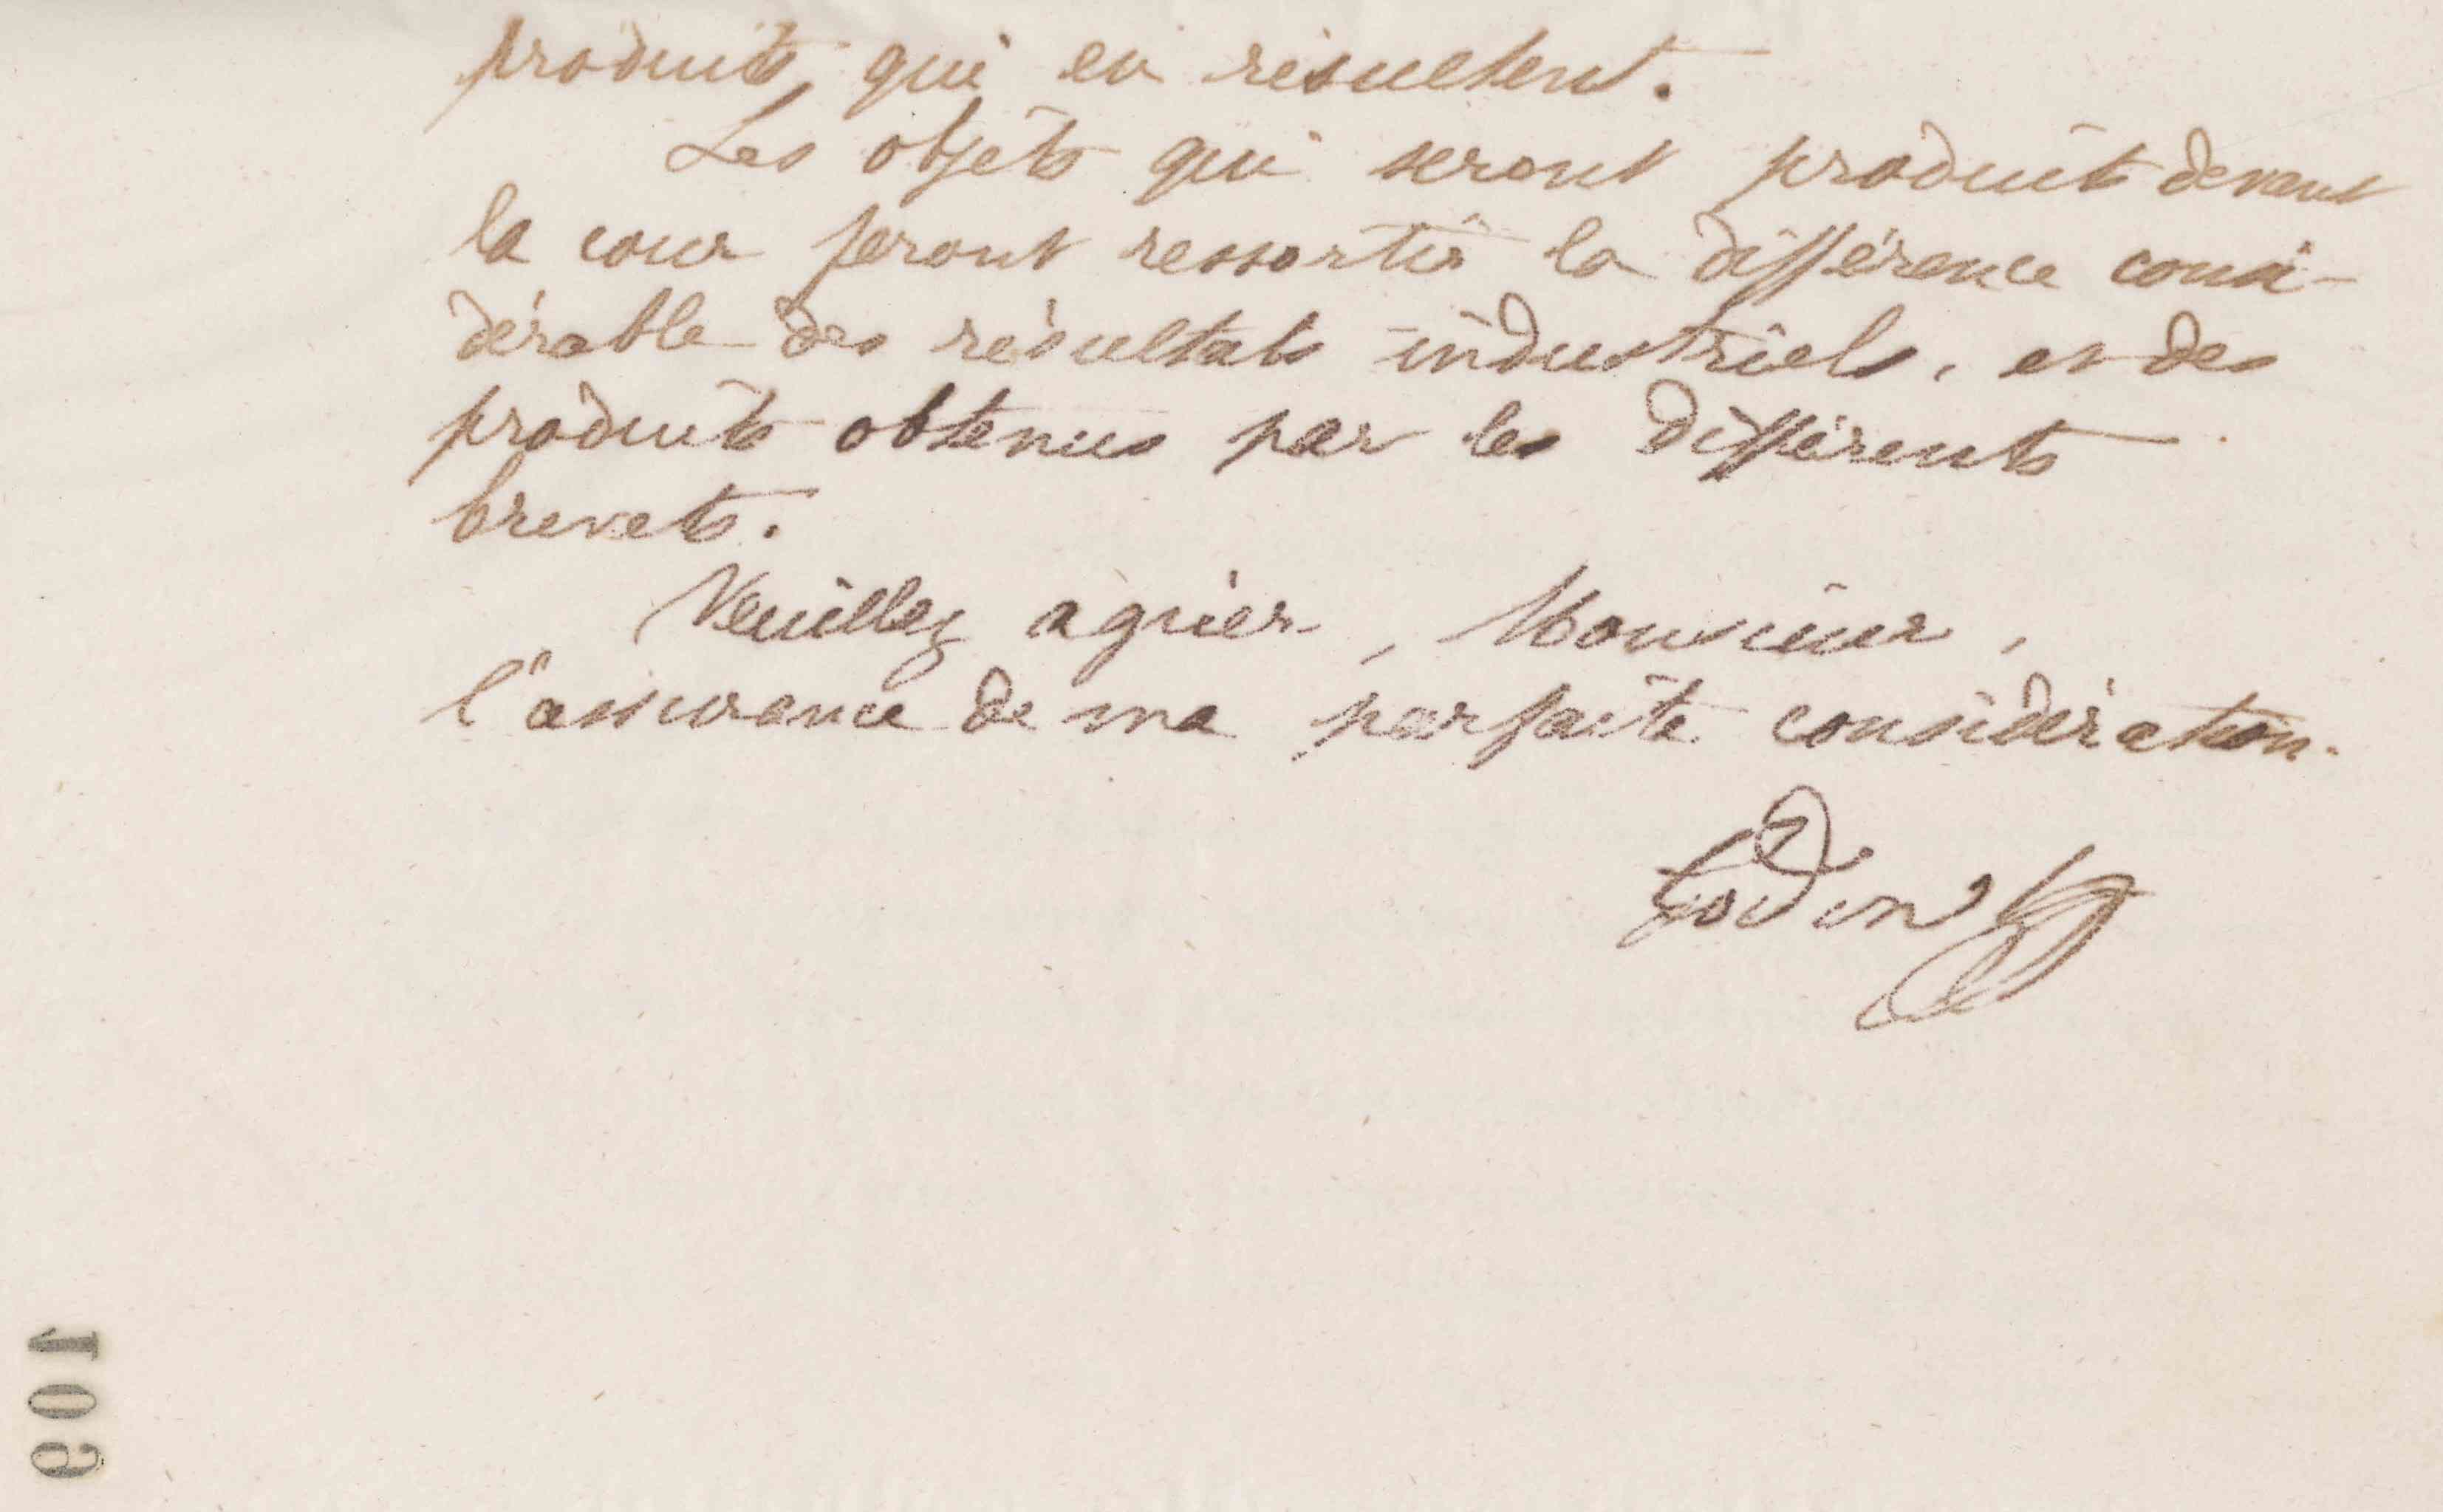 produits, qui en résultent.
Les objets qui seront produits devant
la cour feront ressortir la différence consi-
dérable des résultats industriels, et des
produits obtenus par les différents
brevets.
Veuillez agréer, Monsieur,
l'assurance de ma parfaite considération.
Godin
109